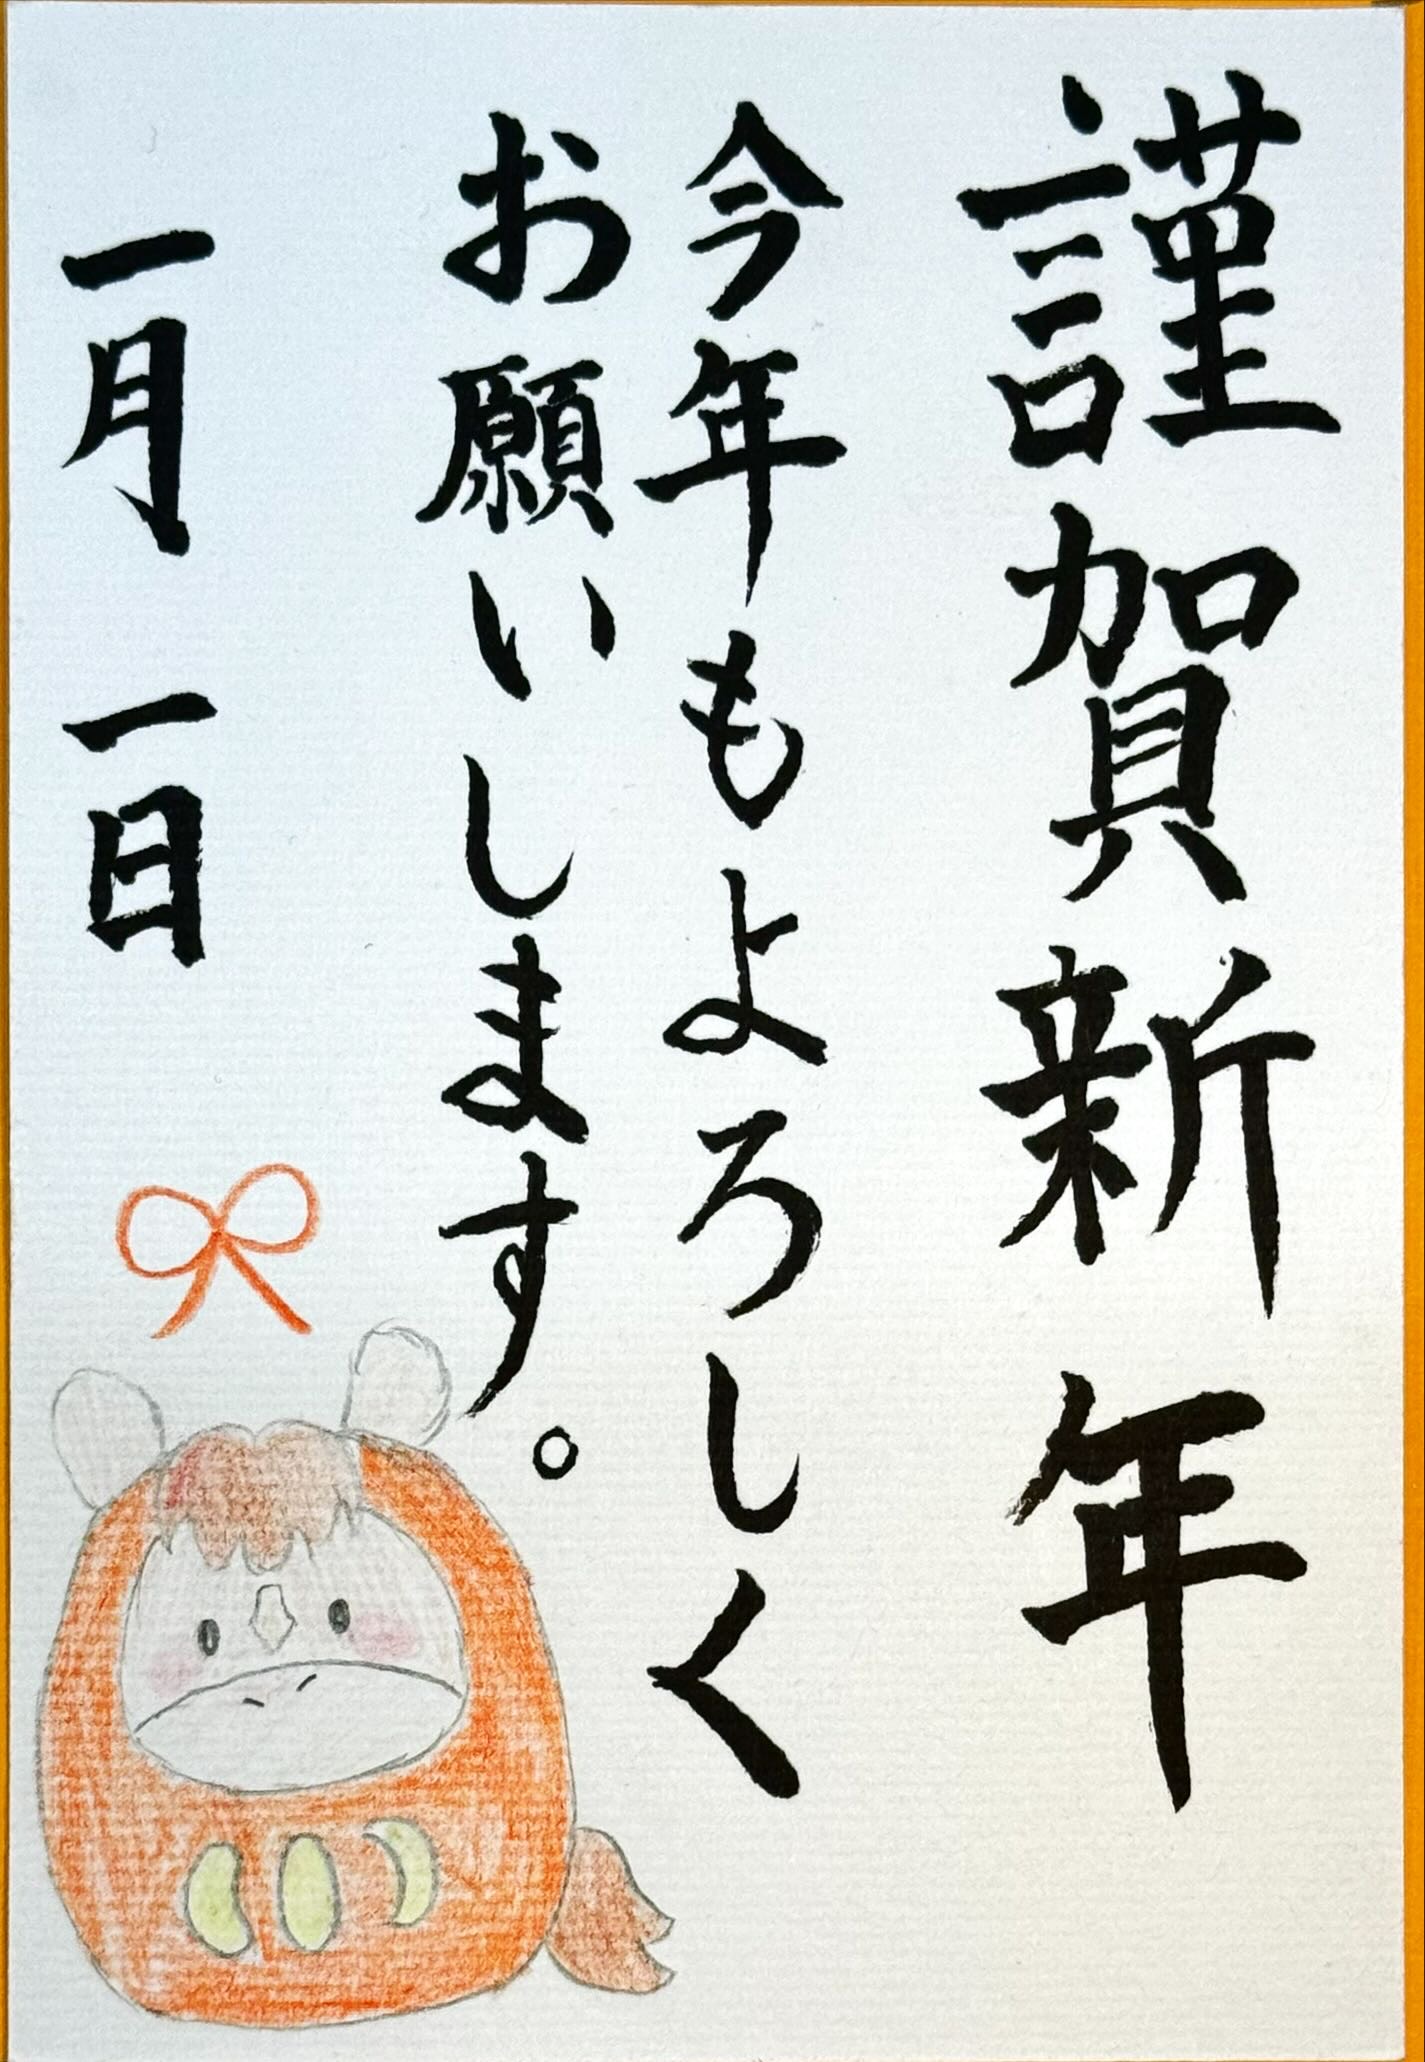 謹賀新年
今年もよろしく
お願いします。
一月一日